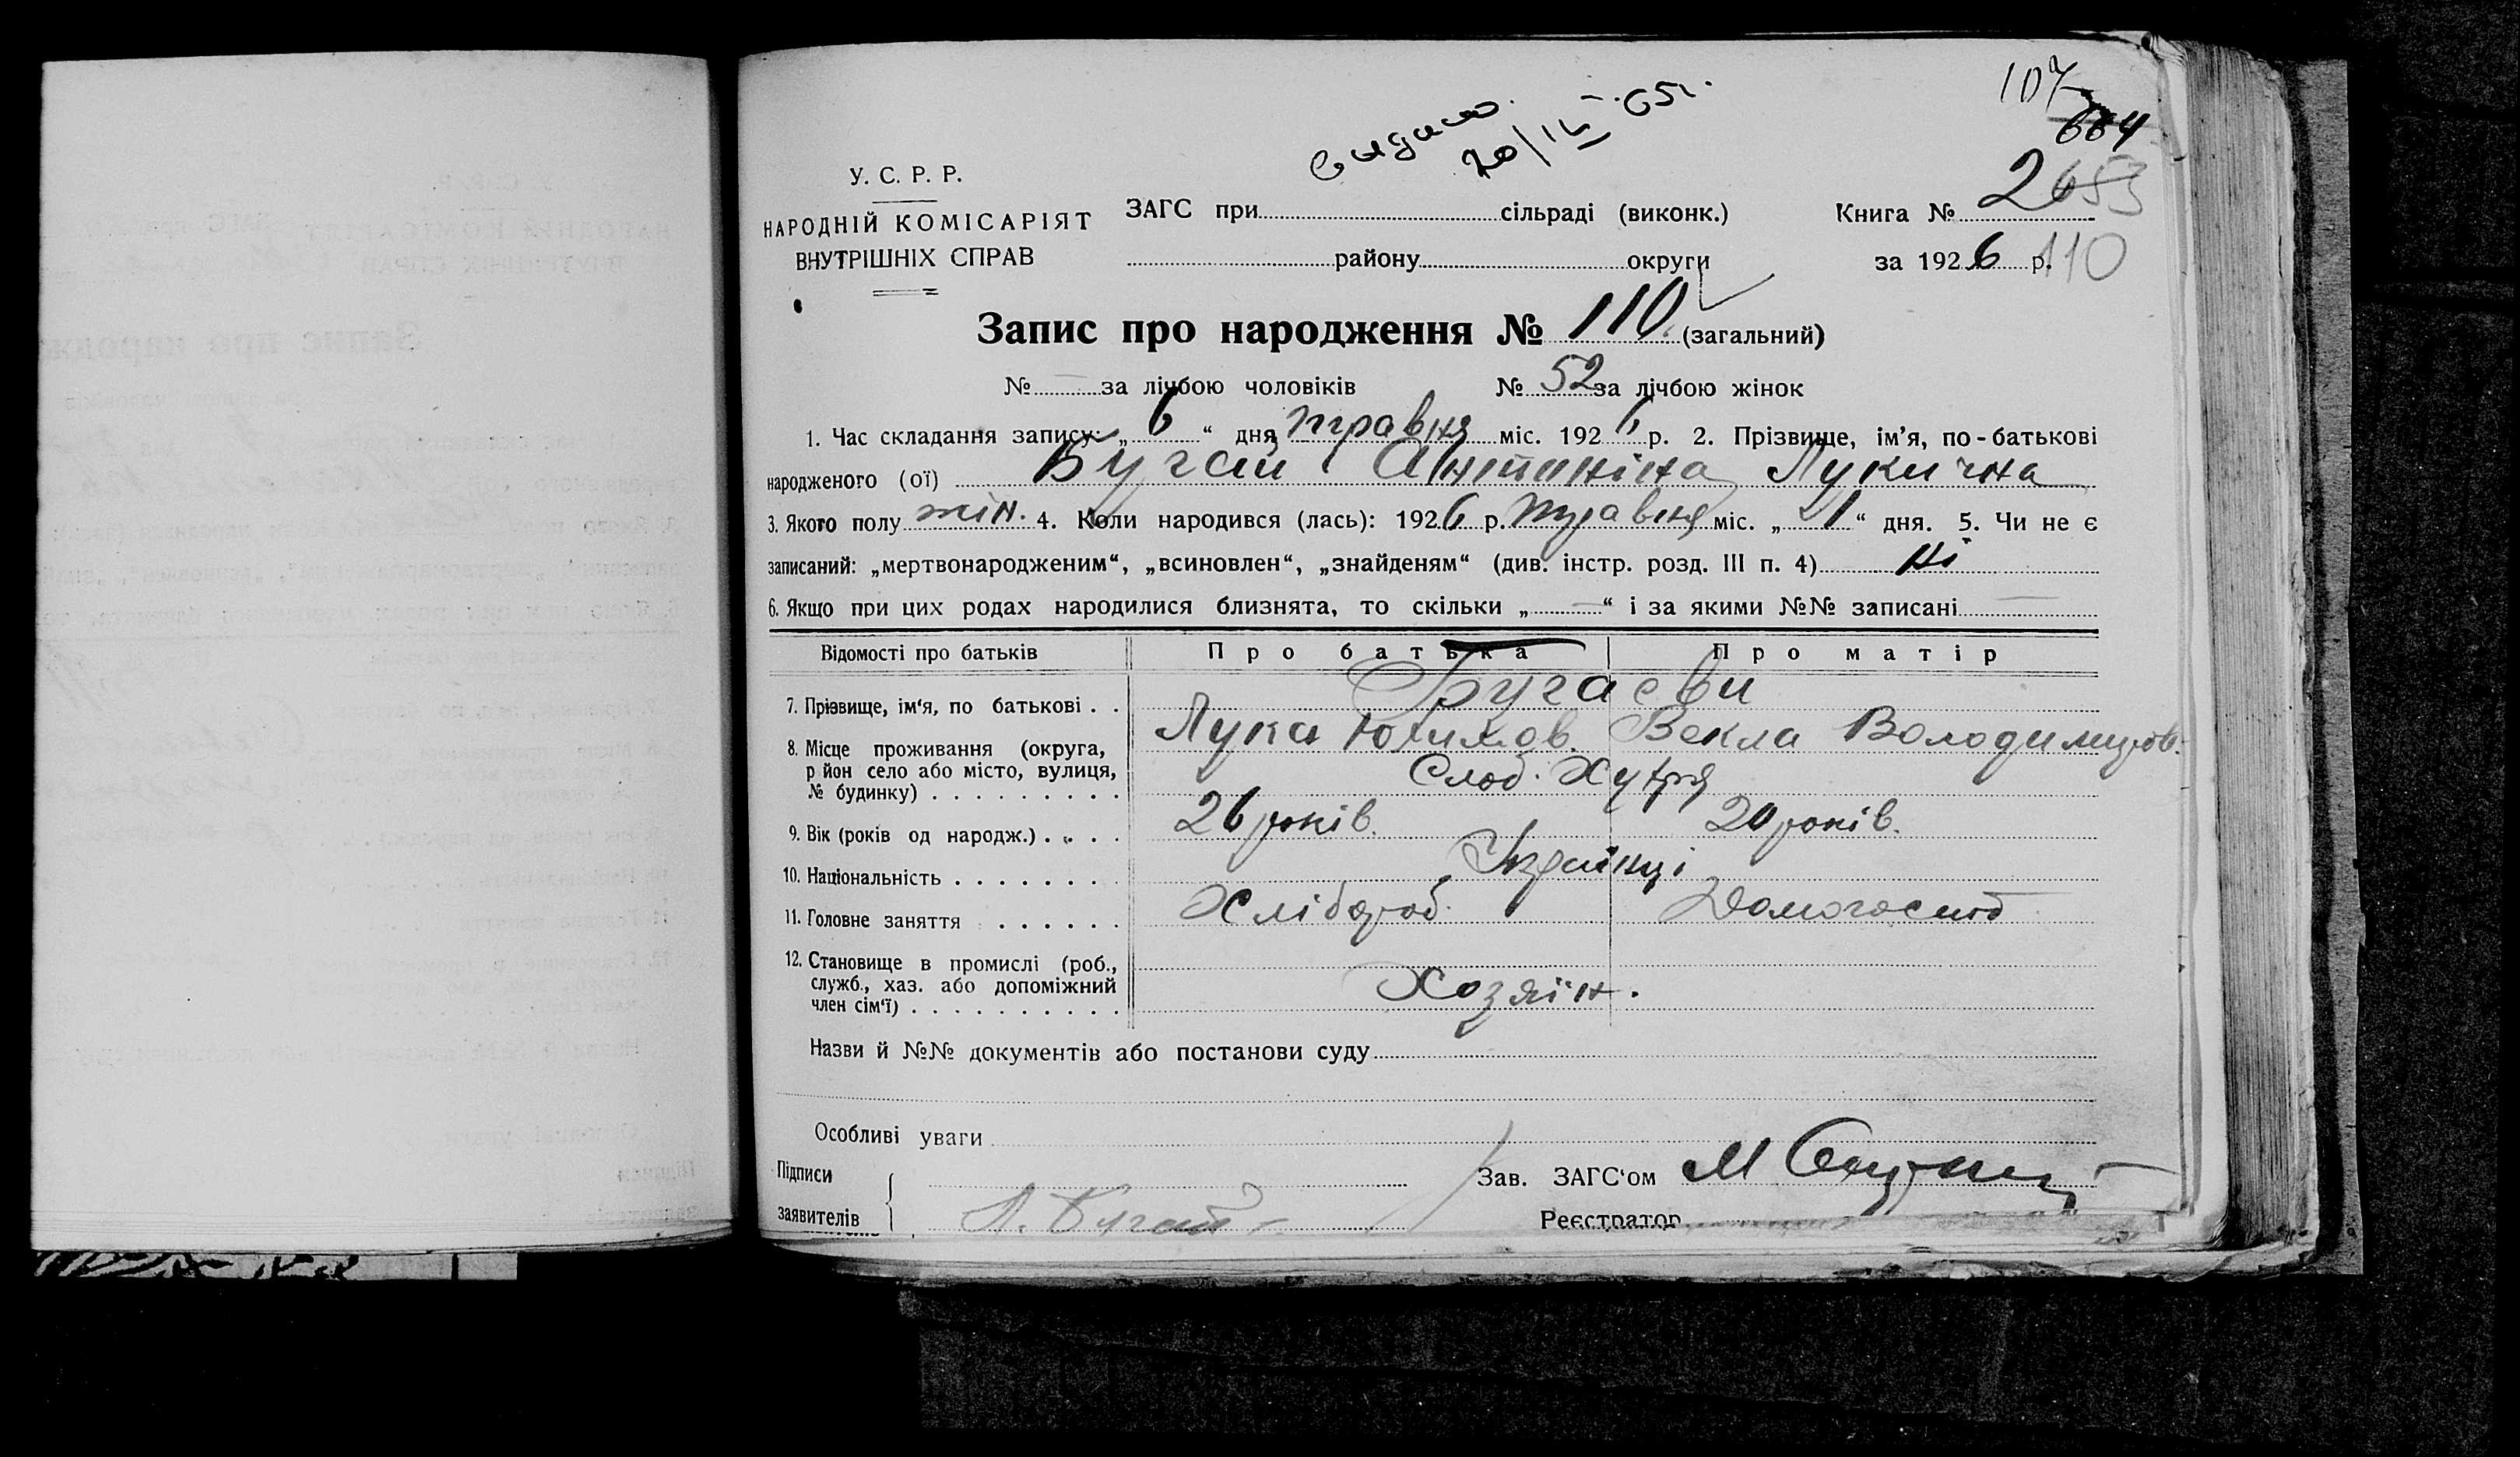 107
684
2653
У. С. Р. Р.
НАРОДНІЙ КОМІСАРІЯТ
ВНУТРІШНІХ СПРАВ
ЗАГС при сільраді (виконк.)
району округи
Книга № 2
за 1926 р. 110
Запис про народження № 110 (загальний)
№ — за лічбою чоловіків № 52 за лічбою жінок
1. Час складання запису: „6“ дня травня міс. 1926 р. 2. Прізвище, ім’я, по-батькові
народженого (ої) Бугай Антаніна Лукична
3. Якого полу жін. 4. Коли народився (лась): 1926 р. травня міс. „1“ дня. 5. Чи не є
записаний: „мертвонародженим“, „всиновлен“, „знайденям“ (див. інстр. розд. III п. 4) ні
6. Якщо при цих родах народилися близнята, то скільки „—“ і за якими №№ записані —
Відомості про батьків Про батька Про матір
7. Прізвище, ім‘я, по батькові . . Бугаєви
Лука Юхимов. Векла Володимиров.
8. Місце проживання (округа,
р йон село або місто, вулиця,
№ будинку) . . . . . . . . . Слоб. Хутря
9. Вік (років од народж.) . . . . 26 років. 20 років.
10. Національність . . . . . . . Українці
11. Головне заняття . . . . . . Хлібороб. Домогоспод
12. Становище в промислі (роб.,
служб., хаз. або допоміжний
член сім‘ї) . . . . . . . . . . Хозяїн.
Назви й №№ документів або постанови суду
Особливі уваги
Підписи
заявителів Л. Бугай
Зав. ЗАГС‘ом М
Реєстратор